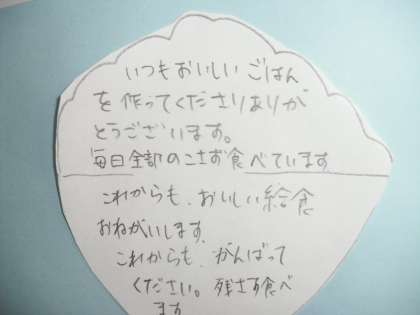 いつもおいしいごはん
を作ってくださりありが
とうございます。
毎日全部のこさず食べています
これからも、おいしい給食
おねがいします。
これからも、がんばって
ください。残さず食べ
ます